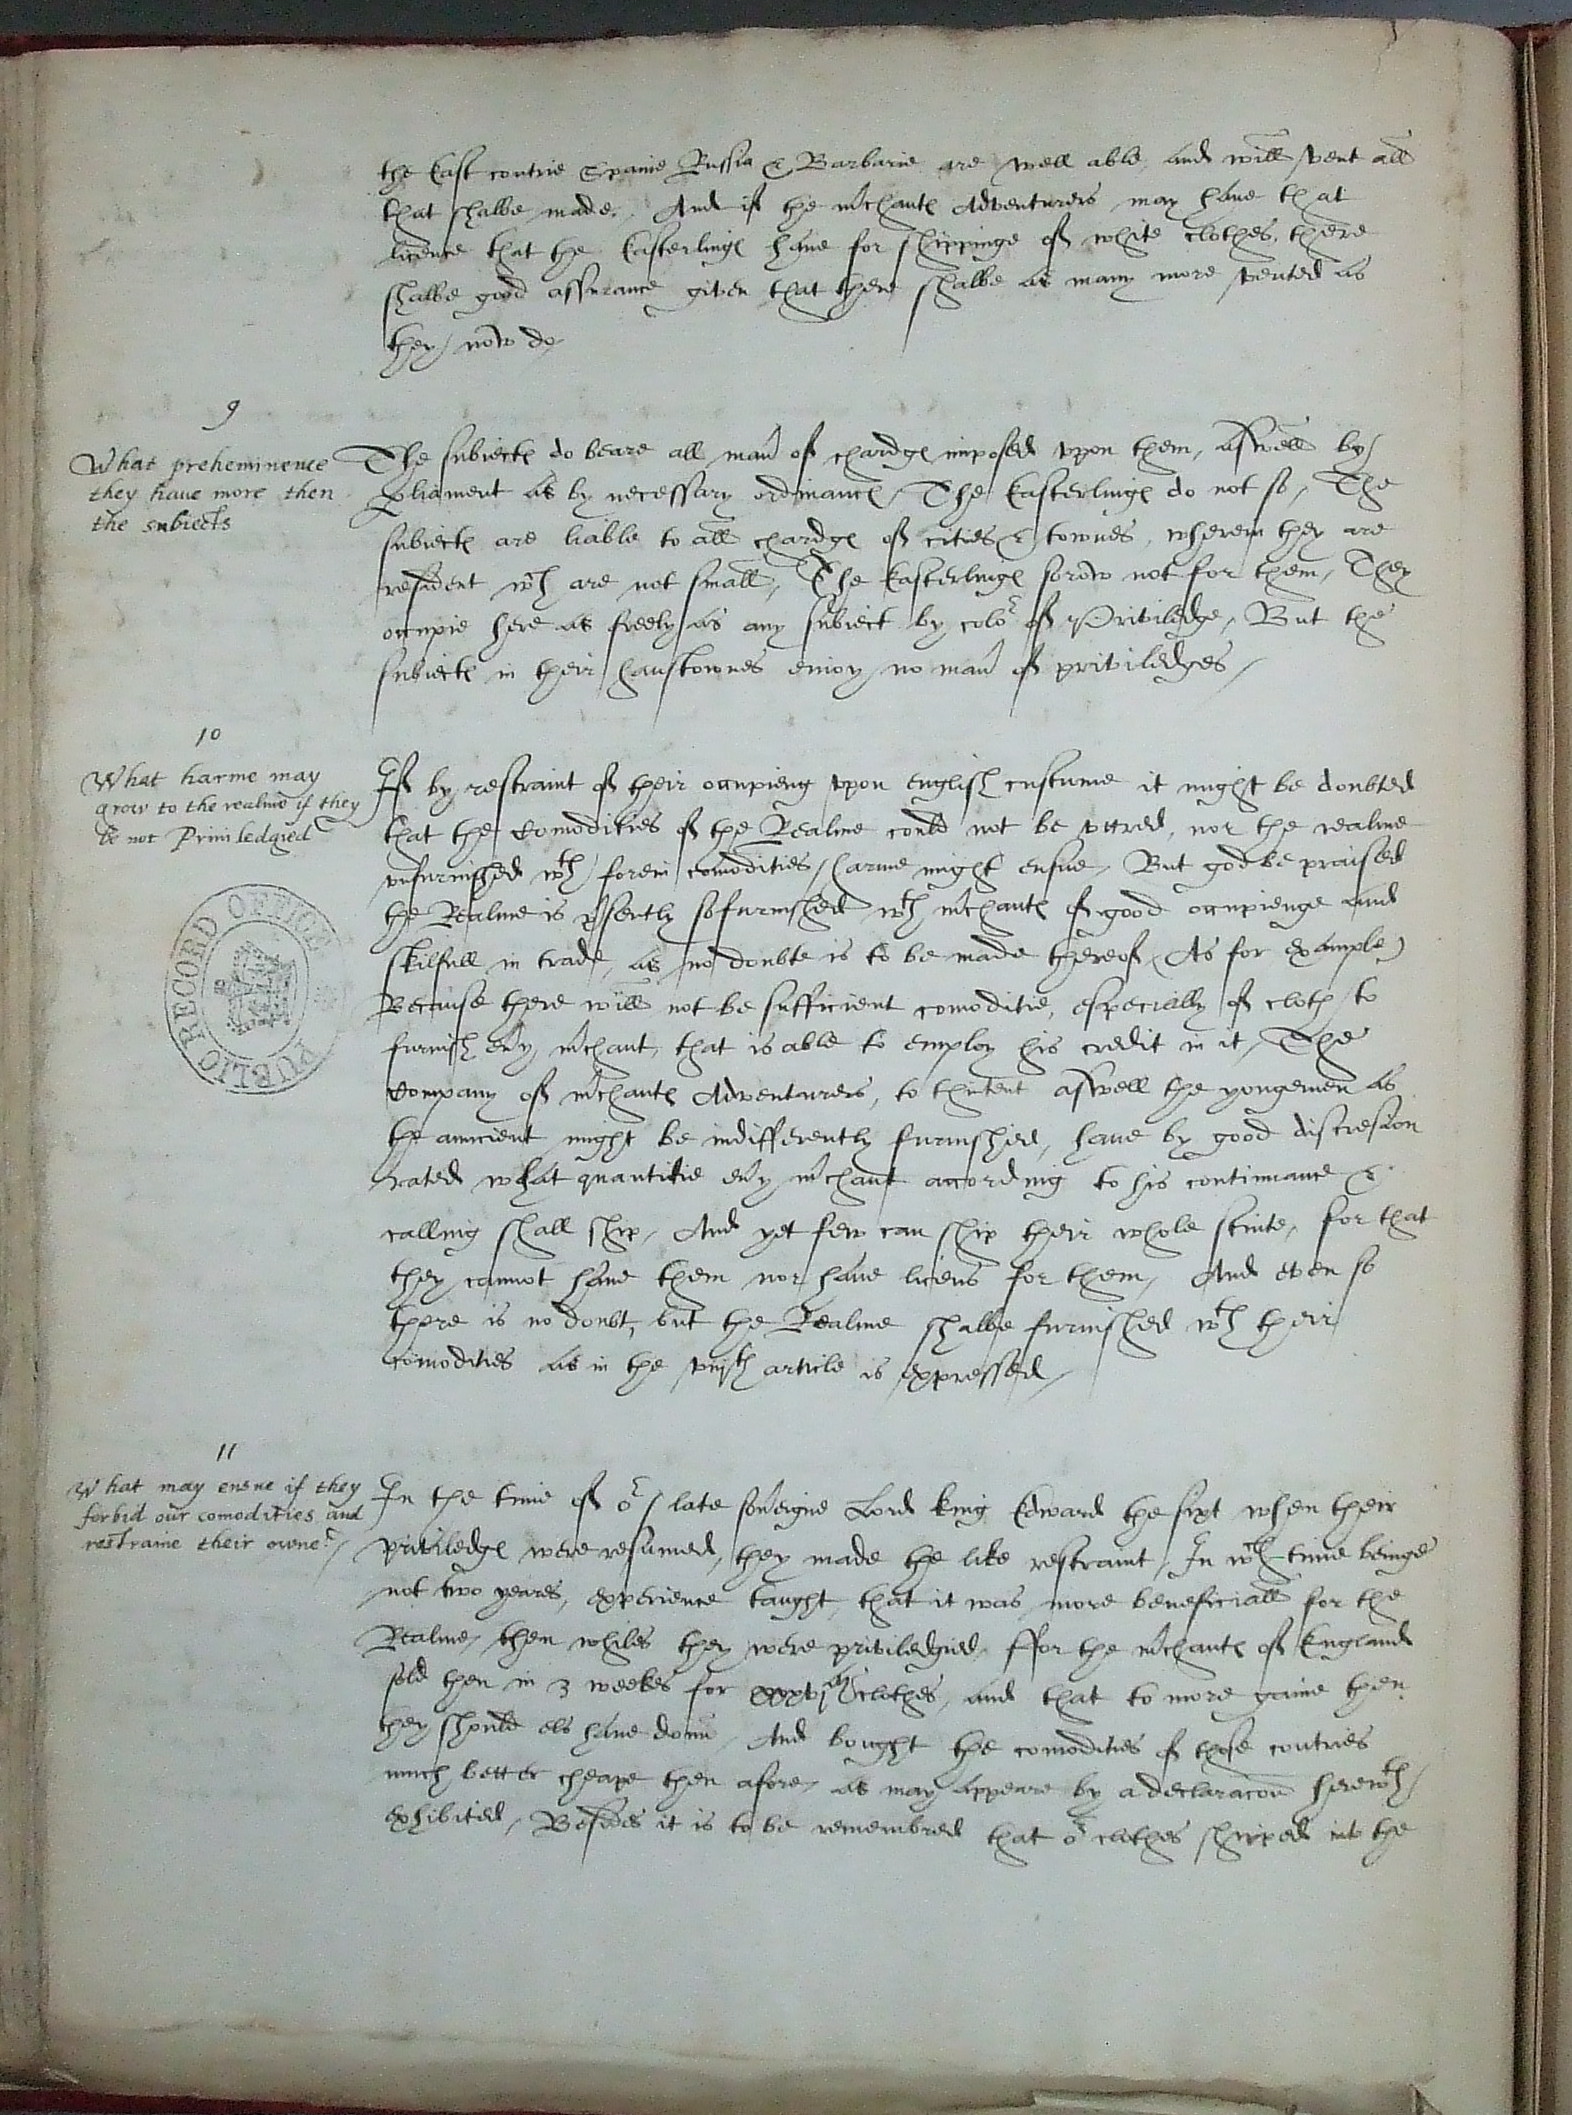 the East contrie Spanie Russia & Barbarie are well able, and will vent all
that shalbe made, And if the mchants Adventurers may have that
licence that the Easterlings have for shippinge of white clothes, there
shalbe good assurance given that there shalbe as many more vented as
they now do,
9
What preheminence
they haue more then
the subiects
The subiects do beare all man of chardgs imposed vpon them, aswell by
pliament as by necessary ordinancs, The Easterlings do not so, The
subiects are liable to all chardgs of cities & townes, wherein they are
resident wch are not small, The Easterlings sorow not for them, They
occupie here as freely as any subiect by color of Priviledge, But the
subiects in their haustownes enioy no man of priviledges,
10
What harme may
grow to the realme if they
be not Priuiledgied
If by restraint of their occupieng vpon english custume it might be doubted
that the comodities of the Realme could not be vttred, nor the realme
vnfurnished wth forein comodities, harme might ensue, But god be praised
the Realme is psently so furnished wth mchants of good occupienge and
skilfull in trade, as no doubte is to be made thereof, As for example)
Because there will not be sufficient comoditie, especially of cloth, to
furnish euy mchant, that is able to employ his credit in it, The
Company of mchants Adventurers, to thintent aswell the yongemen as
the auncient might be indifferently furnished, have by good discresion
rated what quantitie euy mchant according to his continuance &
calling shall ship, And yet few can ship their whole stinte, for that
they cannot have them nor have licens for them, And even so
there is no doubt, but the Realme shalbe furnished wth their
comodities as in the viijth article is expressed,
11
What may ensue if they
forbid our comodities and
restraine their owne
In the time of or late soueigne Lord king Edward the sixt when their
priviledgs were resumed, they made the like restraint, In wch time beinge
not two yeares, experience taught, that it was more beneficiall for the
Realme, then whiles they were priviledgied, ffor the mchants of England
sold then in 3 weekes for clothes, and that to more gaine then
they should els have donn, And bought the comodities of those contries
much better cheape then afore, as may appeare by a declaracon herewth
exhibited, Besides it is to be remembred that or clothes shipped into the
PUBLIC RECORD OFFICE